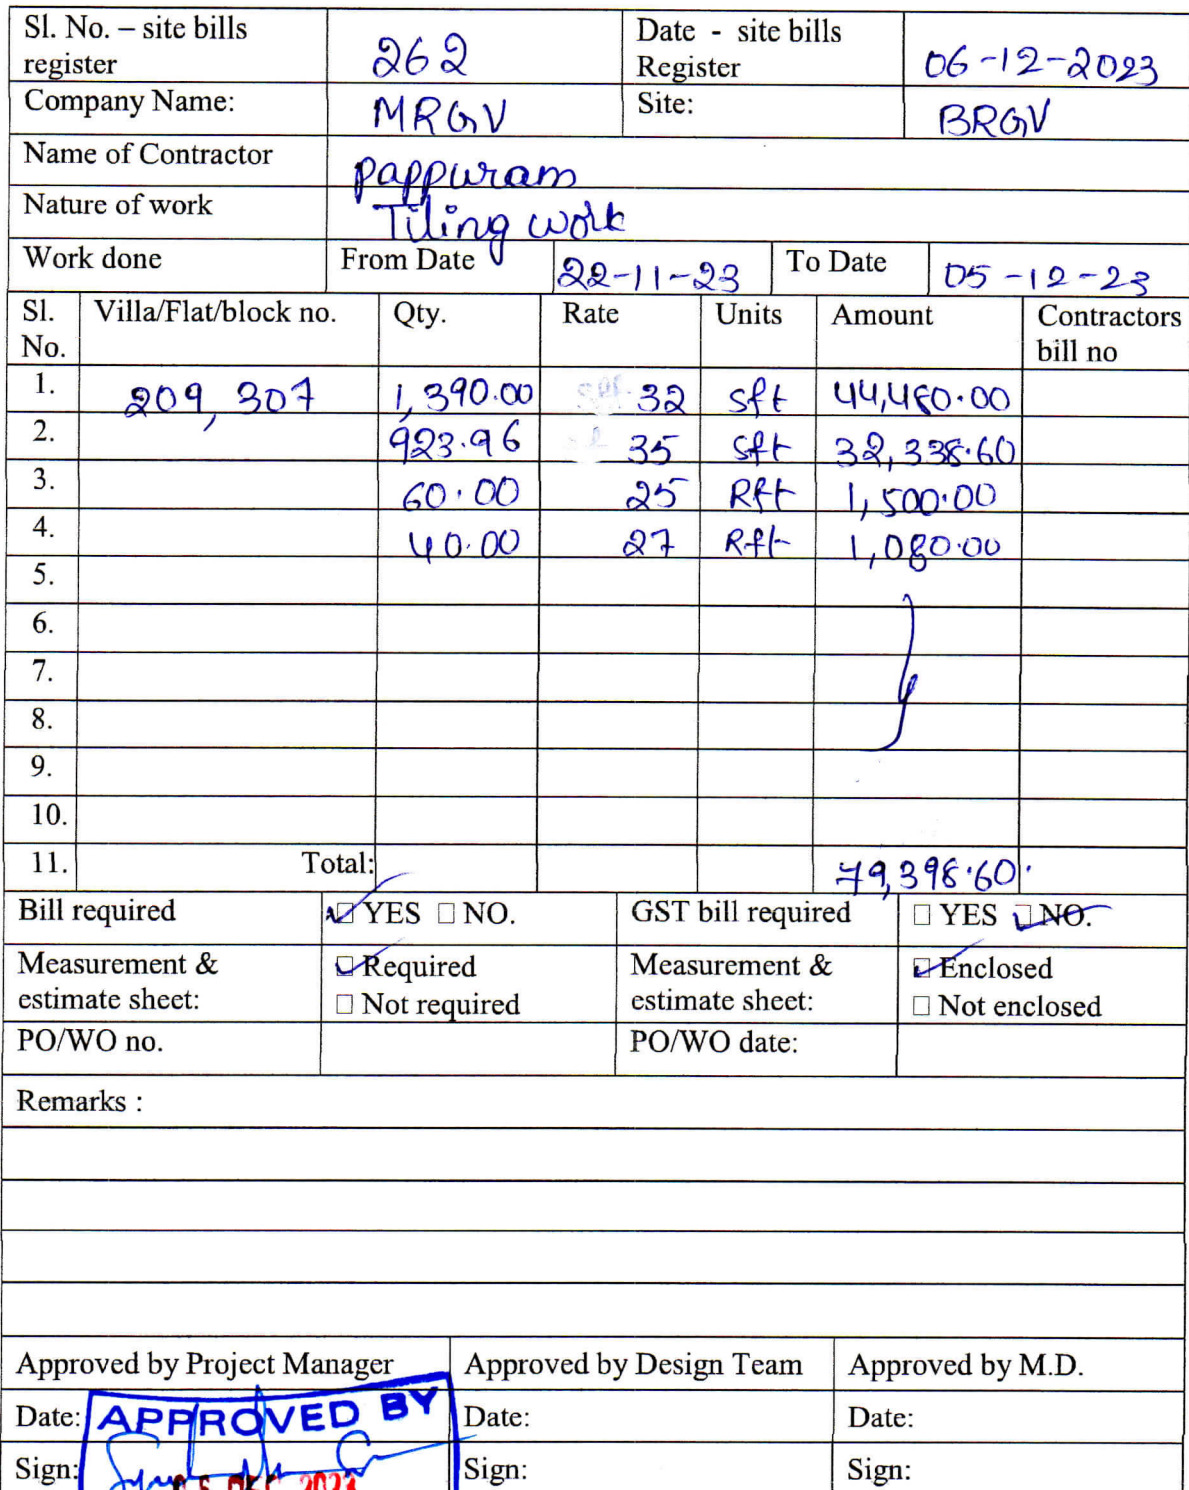 Sl. No. – site bills register 262 Date - site bills Register 06-12-2023
Company Name: MRGV Site: BRGV
Name of Contractor Pappuram
Nature of work Tiling work
Work done From Date 22-11-23 To Date 05-12-23
Sl. No. Villa/Flat/block no. Qty. Rate Units Amount Contractors bill no
1. 209, 307 1,390.00 32 Sft 44,480.00
2. 923.96 35 Sft 32,338.60
3. 60.00 25 Rft 1,500.00
4. 40.00 27 Rft 1,080.00
5.
6.
7.
8.
9.
10.
11. Total: 79,398.60
Bill required ☑ YES ☐ NO. GST bill required ☐ YES ☑ NO.
Measurement & estimate sheet: ☑ Required ☐ Not required Measurement & estimate sheet: ☑ Enclosed ☐ Not enclosed
PO/WO no. PO/WO date:
Remarks :
Approved by Project Manager Approved by Design Team Approved by M.D.
Date: APPROVED BY Date: Date:
Sign: DEC 2023 Sign: Sign: